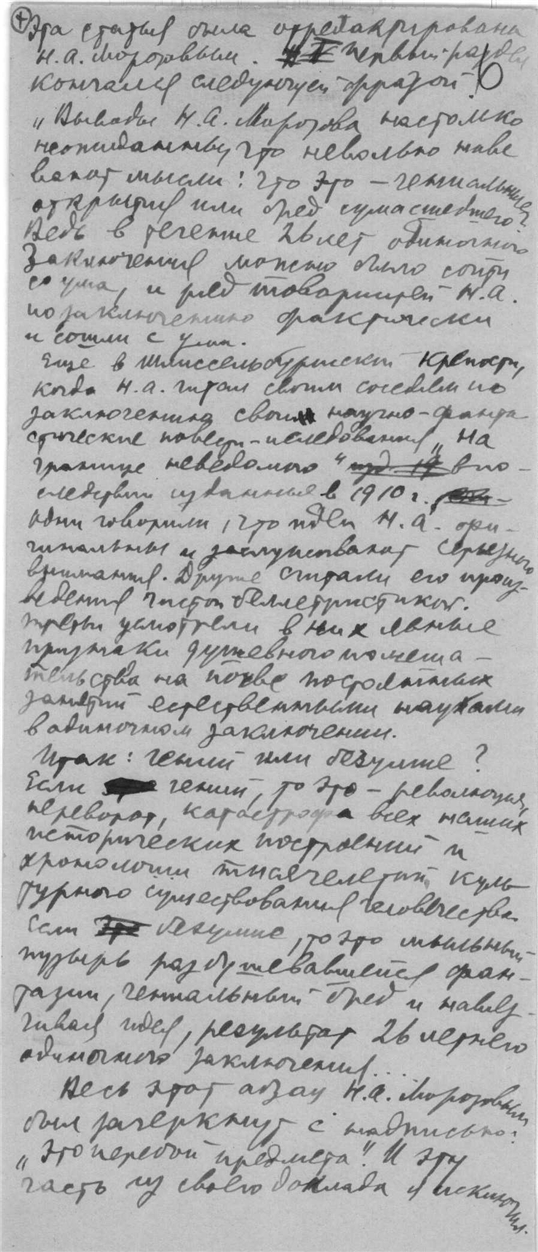 Эта статья была отредактирована
Н.А. Морозовым. Первый раздел
кончался следующей фразой:
„Выводы Н.А. Морозова настолько
неожиданны, что невольно наве
вают мысли: что это – гениальные
открытия или бред сумасшедшего?
Ведь в течение 26 лет одиночного
заключения можно было сойти
с ума, и ряд товарищей Н.А.
по заключению фактически
и сошли с ума.
Еще в Шлиссельбургской крепости,
когда Н.А. читал своим соседям по
заключению свои научно-фанта
стические повести-исследования „На
границе неведомого" впо-
следствии изданные в 1910 г.
одни говорили, что идеи Н.А. ори-
гинальны и заслуживают серьезного
внимания. Другие считали его произ-
ведения чистой беллетристикой.
Третьи усмотрели в них явные
признаки душевного помеша-
тельства на почве постоянных
занятий естественными науками
в одиночном заключении.
Итак: гений или безумие?
Если гений, то это – революция,
переворот, катастрофа всех наших
исторических построений и
хронологии тысячелетий куль
турного существования человечества.
Если безумие, то это мыльный
пузырь разбушевавшейся фан-
тазии, гениальный бред и навяз-
чивая идея, результат 26 летнего
одиночного заключения...
Весь этот абзац Н.А. Морозовым
был зачеркнут с надписью:
„Это перебой предмета". И эту
часть из своего доклада я исключил.